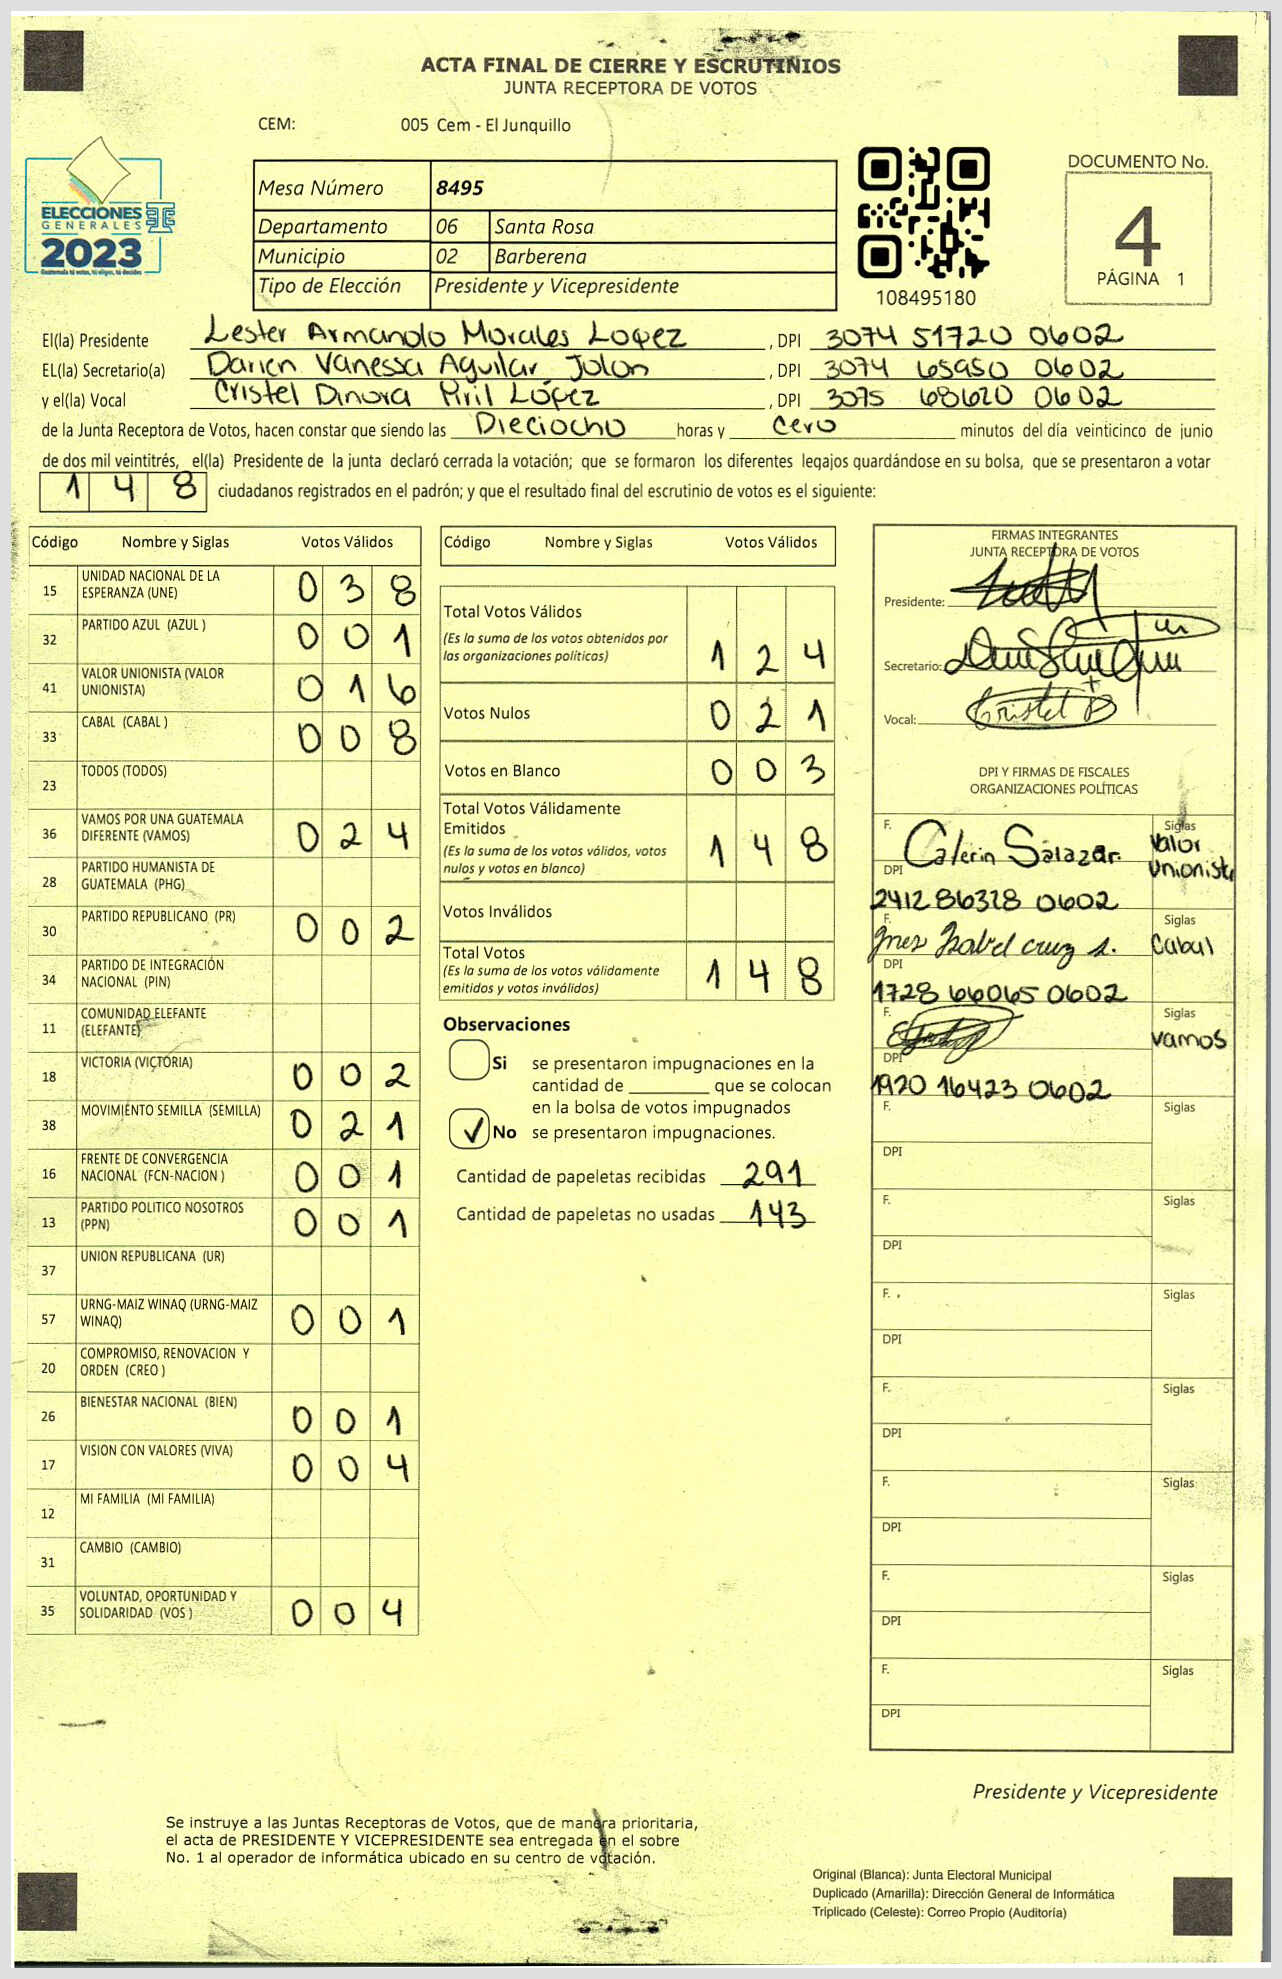 ACTA FINAL DE CIERRE Y ESCRUTINIOS
JUNTA RECEPTORA DE VOTOS
CEM: 005 Cem - El Junquillo
ELECCIONES
GENERALES
2023
Guatemala tú votas, tú eliges, tú decides
Mesa Número 8495
Departamento 06 Santa Rosa
Municipio 02 Barberena
Tipo de Elección Presidente y Vicepresidente
108495180
DOCUMENTO No.
4
PÁGINA 1
El(la) Presidente Lester Armando Morales Lopez , DPI 3074 51720 0602
EL(la) Secretario(a) Darien Vanessa Aguilar Jolon , DPI 3074 65950 0602
y el(la) Vocal Cristel Dinora Piril López , DPI 3075 68620 0602
de la Junta Receptora de Votos, hacen constar que siendo las Dieciocho horas y Cero minutos del día veinticinco de junio
de dos mil veintitrés, el(la) Presidente de la junta declaró cerrada la votación; que se formaron los diferentes legajos quardándose en su bolsa, que se presentaron a votar
1 4 8 ciudadanos registrados en el padrón; y que el resultado final del escrutinio de votos es el siguiente:
Código Nombre y Siglas Votos Válidos
15 UNIDAD NACIONAL DE LA ESPERANZA (UNE) 0 3 8
32 PARTIDO AZUL (AZUL ) 0 0 1
41 VALOR UNIONISTA (VALOR UNIONISTA) 0 1 6
33 CABAL (CABAL ) 0 0 8
23 TODOS (TODOS)
36 VAMOS POR UNA GUATEMALA DIFERENTE (VAMOS) 0 2 4
28 PARTIDO HUMANISTA DE GUATEMALA (PHG)
30 PARTIDO REPUBLICANO (PR) 0 0 2
34 PARTIDO DE INTEGRACIÓN NACIONAL (PIN)
11 COMUNIDAD ELEFANTE (ELEFANTE)
18 VICTORIA (VICTORIA) 0 0 2
38 MOVIMIENTO SEMILLA (SEMILLA) 0 2 1
16 FRENTE DE CONVERGENCIA NACIONAL (FCN-NACION ) 0 0 1
13 PARTIDO POLITICO NOSOTROS (PPN) 0 0 1
37 UNION REPUBLICANA (UR)
57 URNG-MAIZ WINAQ (URNG-MAIZ WINAQ) 0 0 1
20 COMPROMISO, RENOVACION Y ORDEN (CREO )
26 BIENESTAR NACIONAL (BIEN) 0 0 1
17 VISION CON VALORES (VIVA) 0 0 4
12 MI FAMILIA (MI FAMILIA)
31 CAMBIO (CAMBIO)
35 VOLUNTAD, OPORTUNIDAD Y SOLIDARIDAD (VOS ) 0 0 4
Código Nombre y Siglas Votos Válidos
Total Votos Válidos
(Es la suma de los votos obtenidos por
las organizaciones politicas) 1 2 4
Votos Nulos 0 2 1
Votos en Blanco 0 0 3
Total Votos Válidamente
Emitidos
(Es la suma de los votos válidos, votos
nulos y votos en blanco) 1 4 8
Votos Inválidos
Total Votos
(Es la suma de los votos válidamente
emitidos y votos inválidos) 1 4 8
Observaciones
Si se presentaron impugnaciones en la
cantidad de que se colocan
en la bolsa de votos impugnados
✓ No se presentaron impugnaciones.
Cantidad de papeletas recibidas 291
Cantidad de papeletas no usadas 143
FIRMAS INTEGRANTES
JUNTA RECEPTORA DE VOTOS
Presidente:
Secretario:
Vocal: Cristel P
DPI Y FIRMAS DE FISCALES
ORGANIZACIONES POLÍTICAS
F. Calerin Salazar. Siglas Valor Unionista
DPI 2412 86328 0602
F. Ines Isabel cruz s. Siglas Cabal
DPI 1728 66065 0602
F. Siglas vamos
DPI 1920 16423 0602
F. Siglas
DPI
F. Siglas
DPI
F. Siglas
DPI
F. Siglas
DPI
F. Siglas
DPI
F. Siglas
DPI
F. Siglas
DPI
Presidente y Vicepresidente
Se instruye a las Juntas Receptoras de Votos, que de manera prioritaria,
el acta de PRESIDENTE Y VICEPRESIDENTE sea entregada en el sobre
No. 1 al operador de informática ubicado en su centro de votación.
Original (Blanca): Junta Electoral Municipal
Duplicado (Amarilla): Dirección General de Informática
Triplicado (Celeste): Correo Propio (Auditoría)